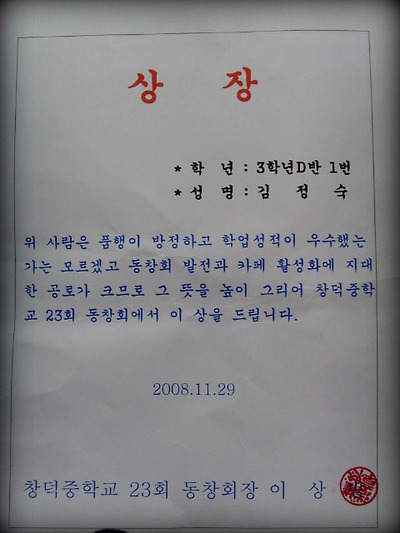 상 장
* 학 년 : 3학년D반 1번
* 성 명 : 김 정 숙
위 사람은 품행이 방정하고 학업성적이 우수했는
가는 모르겠고 동창회 발전과 카페 활성화에 지대
한 공로가 크므로 그 뜻을 높이 그리어 창덕중학
교 23회 동창회에서 이 상을 드립니다.
2008.11.29
창덕중학교 23회 동창회장 이 상